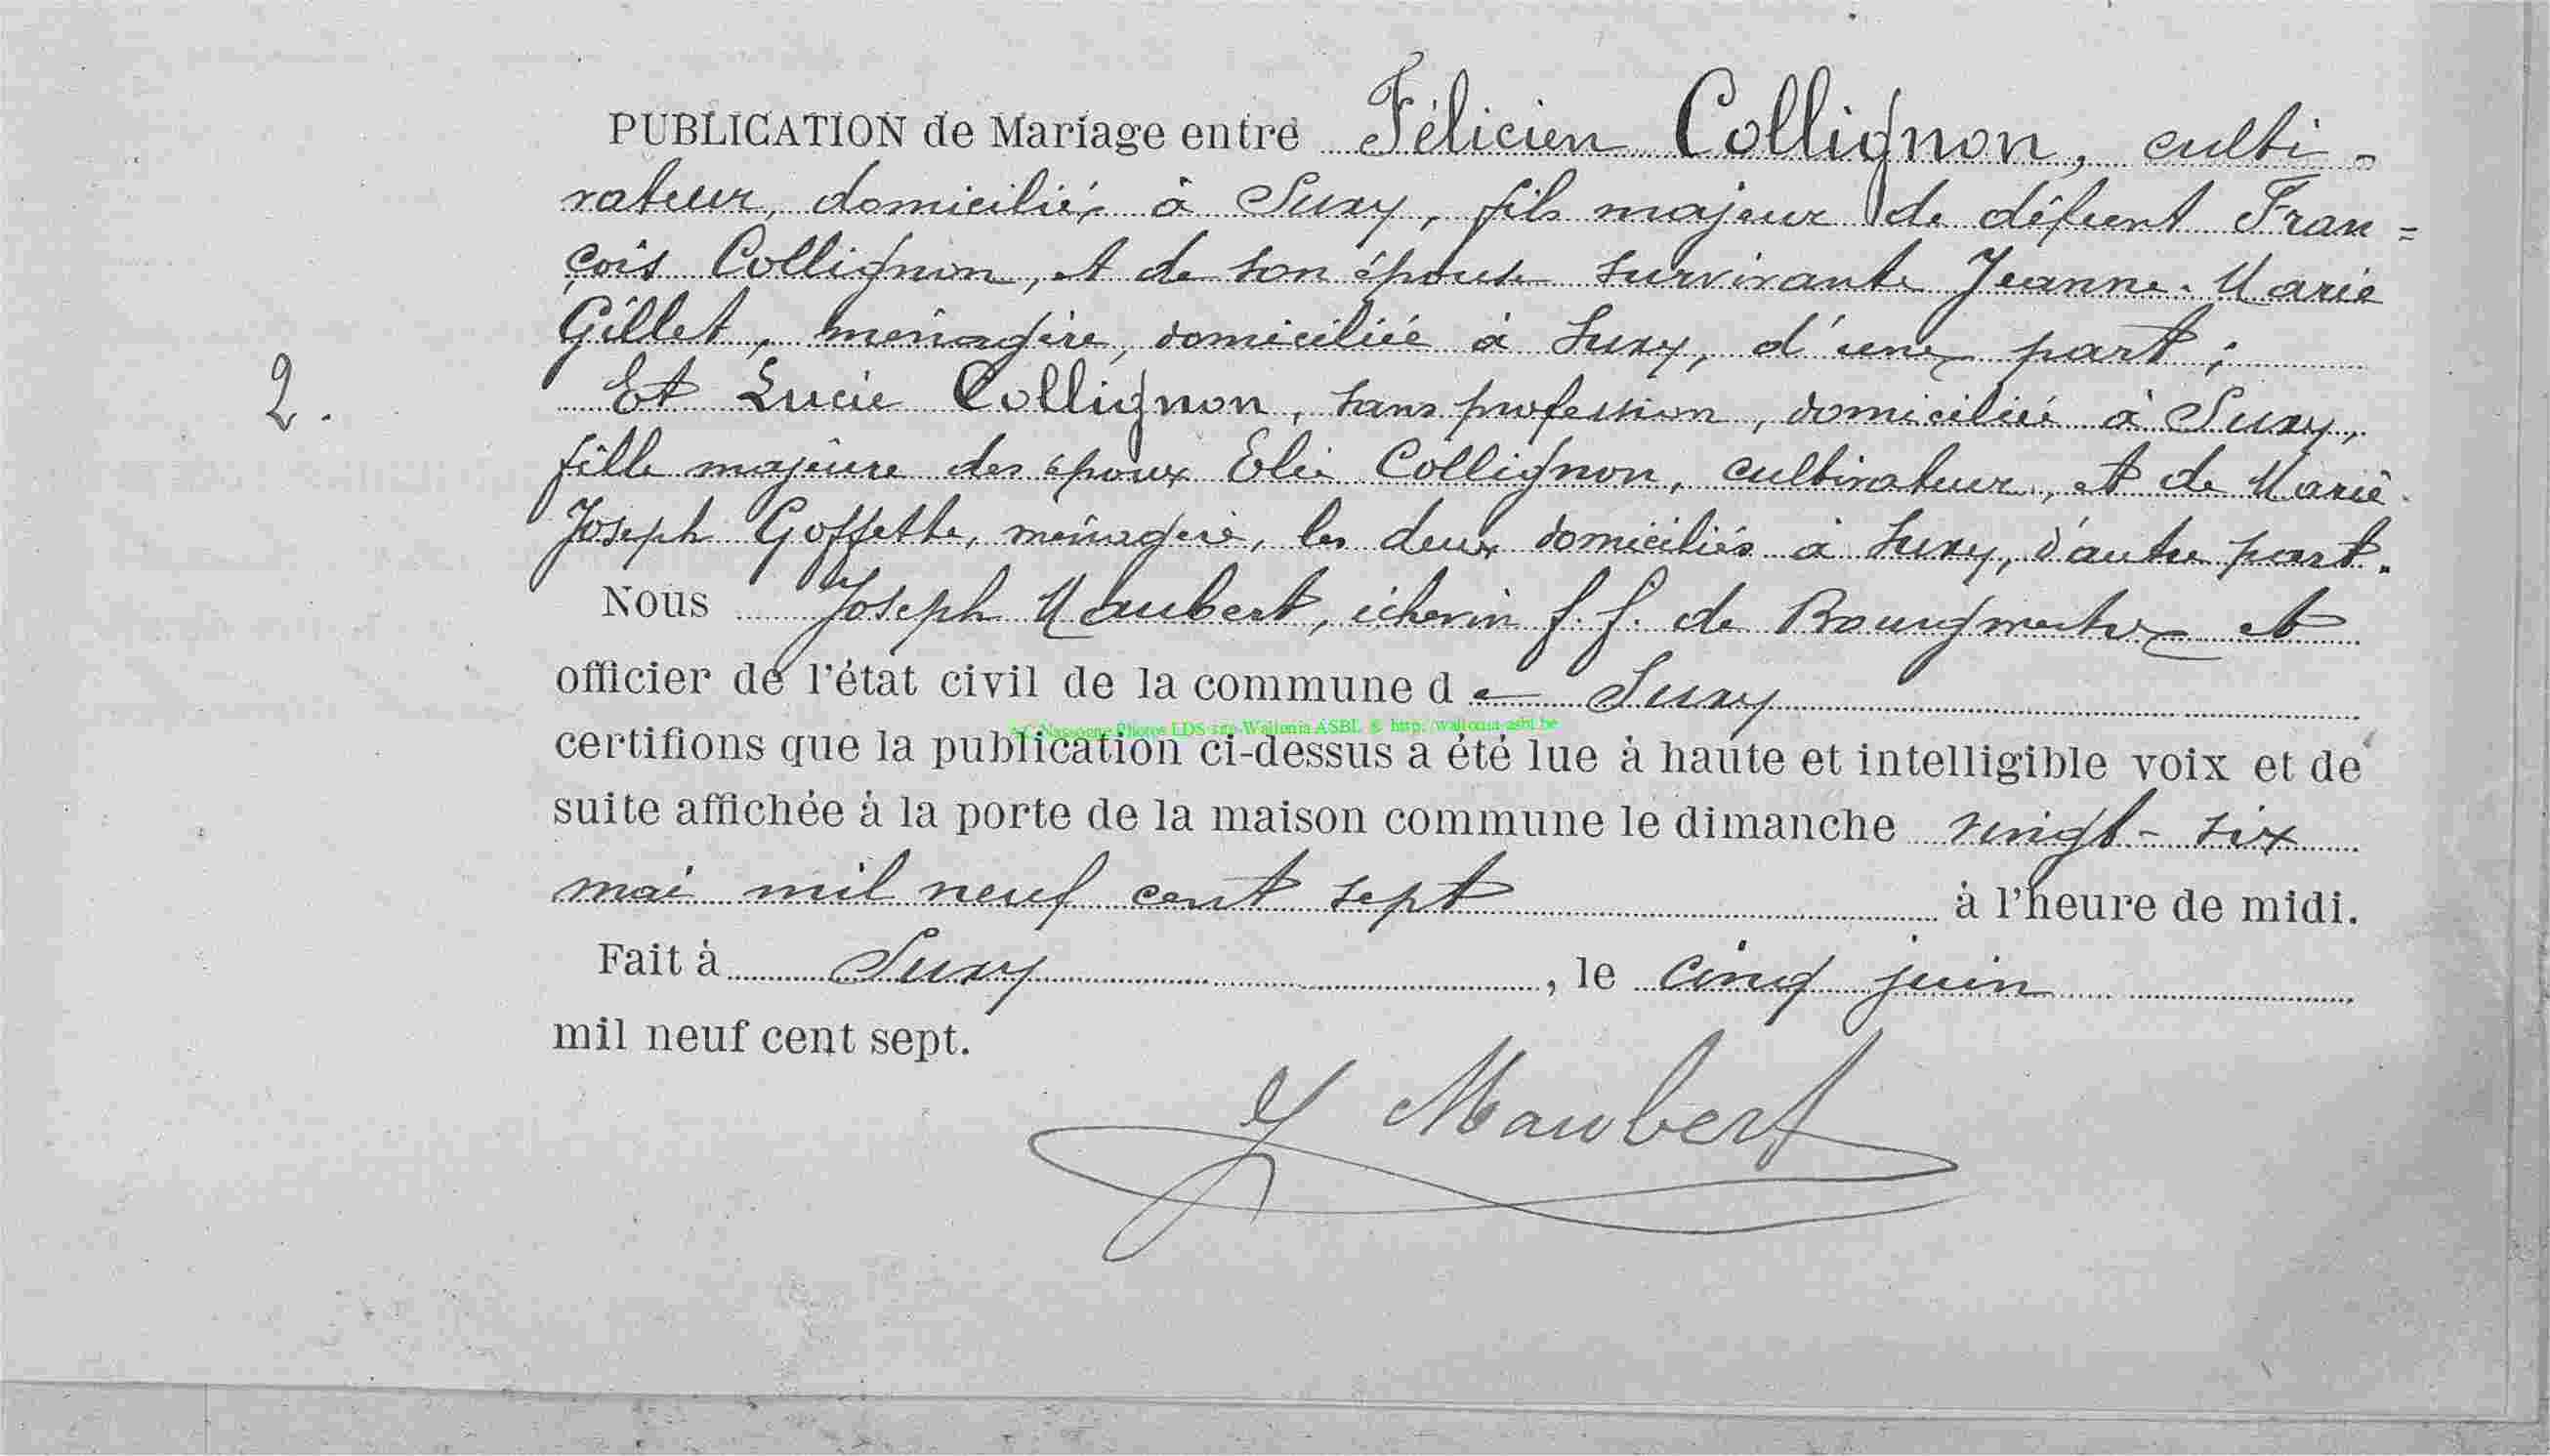 PUBLICATION de Mariage entre Félicien Collignon, culti-
vateur, domicilié à Suxy, fils majeur de défunt Fran=
çois Collignon, et de son épouse survivante Jeanne-Marie
Gillet, ménagère, domiciliée à Suxy, d'une part;
2.
Et Lucie Collignon, sans profession, domiciliée à Suxy,
fille majeure des époux Elie Collignon, cultivateur, et de Marie-
Joseph Goffette, ménagère, les deux domiciliés à Suxy, d'autre part.
Nous Joseph Maubert, échevin f.f. de Bourgmestre et
officier de l'état civil de la commune de Suxy
AC Nassogne Photos LDS site Wallonia ASBL © http://wallonia-asbl.be
certifions que la publication ci-dessus a été lue à haute et intelligible voix et de
suite affichée à la porte de la maison commune le dimanche vingt-six
mai mil neuf cent sept à l'heure de midi.
Fait à Suxy, le cinq juin
mil neuf cent sept.
J Maubert